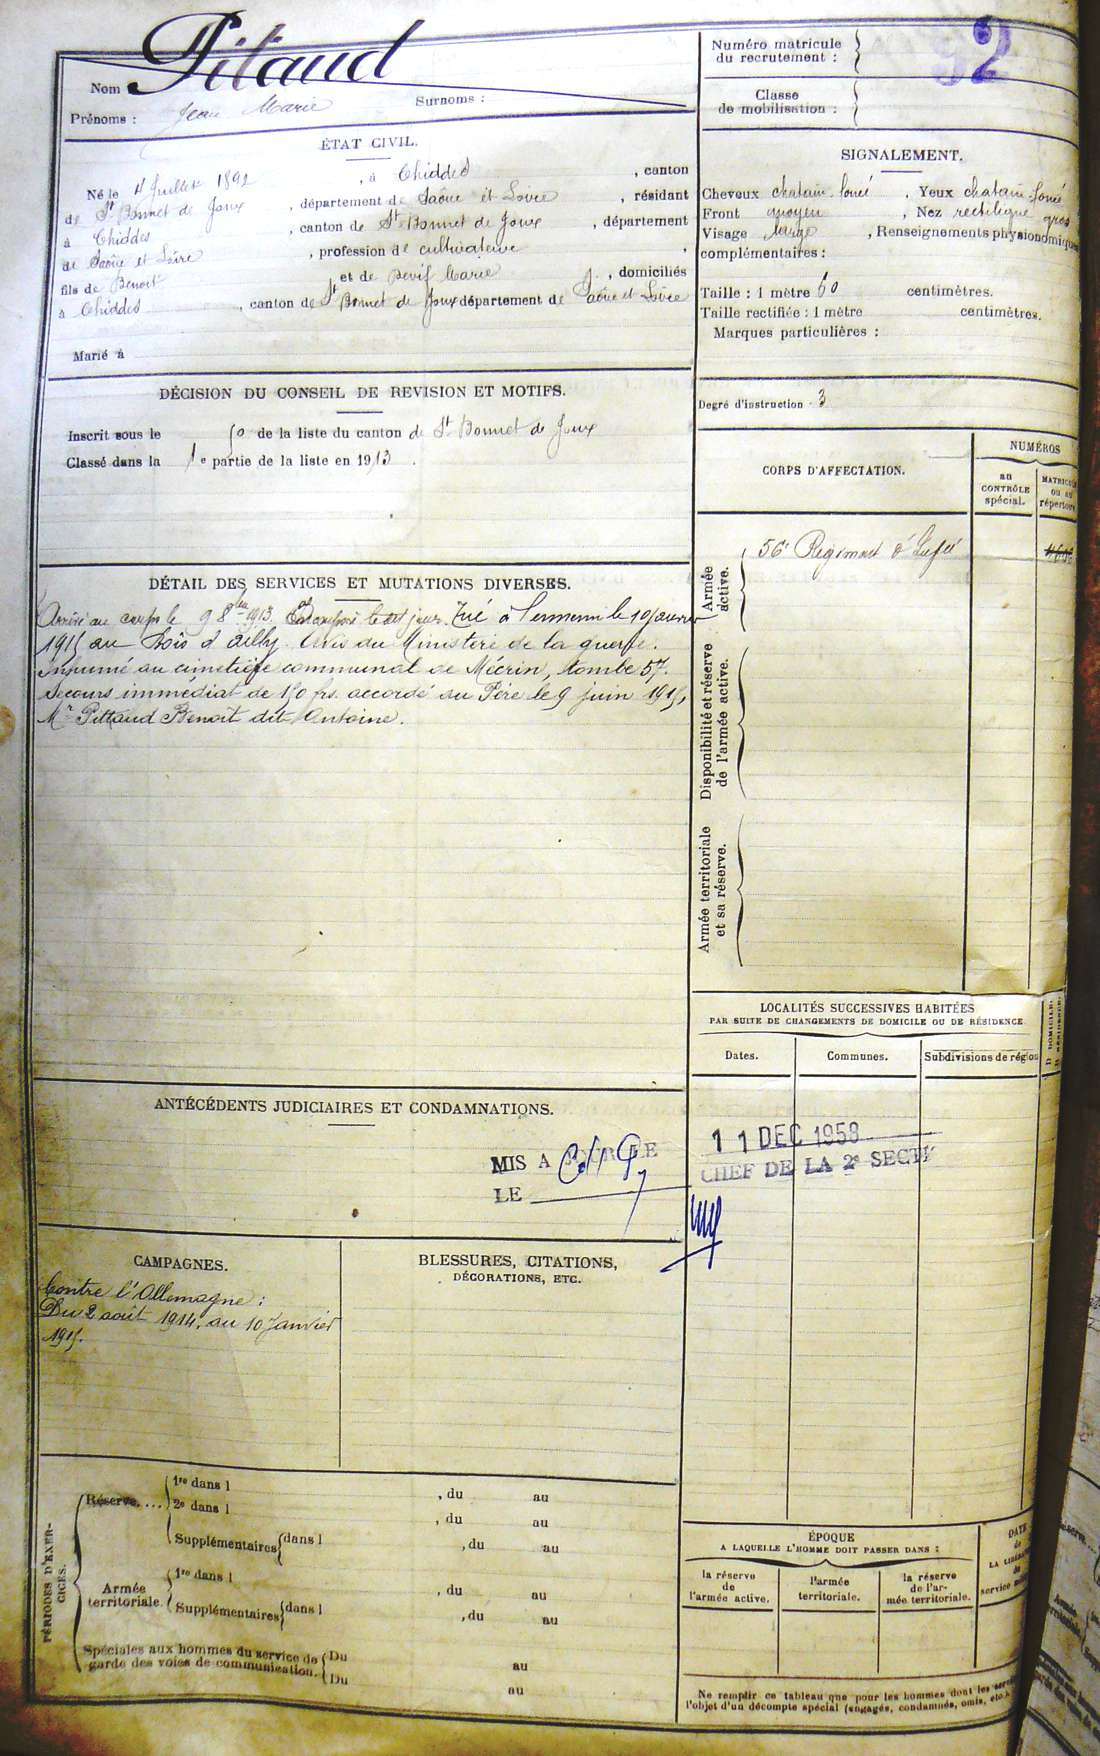 Nom Pitaud
Prénoms : Jean Marie Surnoms :
ÉTAT CIVIL.
Né le 4 Juillet 1892, à Chiddes, canton
de St Bonnet de Joux, département de Saône et Loire, résidant
à Chiddes, canton de St Bonnet de Joux, département
de Saône et Loire, profession de cultivateur,
fils de Benoit et de Devif Marie, domiciliés
à Chiddes, canton de St Bonnet de Joux département de Saône et Loire
Marié à
DÉCISION DU CONSEIL DE REVISION ET MOTIFS.
Inscrit sous le 50 de la liste du canton de St Bonnet de Joux
Classé dans la 1e partie de la liste en 1913.
DÉTAIL DES SERVICES ET MUTATIONS DIVERSES.
Arrivé au corps le 9 8bre 1913. jour. Tué à l'ennemi le 10 janvier
1915 au Bois d'Ailly. Avis du Ministère de la guerre.
Inhumé au cimetière communal de Mécrin, tombe 57.
Secours immédiat de 150 frs. accordé au Père le 9 juin 1915,
Mr Pittaud Benoît dit Antoine.
ANTÉCÉDENTS JUDICIAIRES ET CONDAMNATIONS.
MIS A JOUR LE
LE
CAMPAGNES.
Contre l'Allemagne :
Du 2 août 1914. au 10 Janvier
1915.
BLESSURES, CITATIONS,
DÉCORATIONS, ETC.
PÉRIODES D'EXER-
CICES.
Réserve....
1re dans l , du au
2e dans l , du au
Supplémentaires dans l , du au
Armée
territoriale.
1re dans l , du au
Supplémentaires dans l , du au
Spéciales aux hommes du service de
garde des voies de communication.
Du au
Du au
Numéro matricule
du recrutement :
92
Classe
de mobilisation :
SIGNALEMENT.
Cheveux chatain foncé. Yeux chatain foncé
Front moyen, Nez rectiligne gros
Visage large, Renseignements physionomiques
complémentaires :
Taille : 1 mètre 60 centimètres.
Taille rectifiée : 1 mètre centimètres.
Marques particulières :
Degré d'instruction 3
CORPS D'AFFECTATION.
NUMÉROS
au
CONTRÔLE
spécial.
MATRICULE
ou au
répertoire
Armée
active.
56e Régiment d'Infie
Disponibilité et réserve
de l'armée active.
Armée territoriale
et sa réserve.
LOCALITÉS SUCCESSIVES HABITÉES
PAR SUITE DE CHANGEMENTS DE DOMICILE OU DE RÉSIDENCE.
D DOMICILE.
R RÉSIDENCE.
Dates. Communes. Subdivisions de région
11 DEC 1958
CHEF DE LA 2e SECT
ÉPOQUE
A LAQUELLE L'HOMME DOIT PASSER DANS :
la réserve
de
l'armée active.
l'armée
territoriale.
la réserve
de l'ar-
mée territoriale.
DATE
de
LA LIBÉRATION
du
service
Ne remplir ce tableau que pour les hommes dont les
l'objet d'un décompte spécial (engagés, condamnés, omis, etc.).